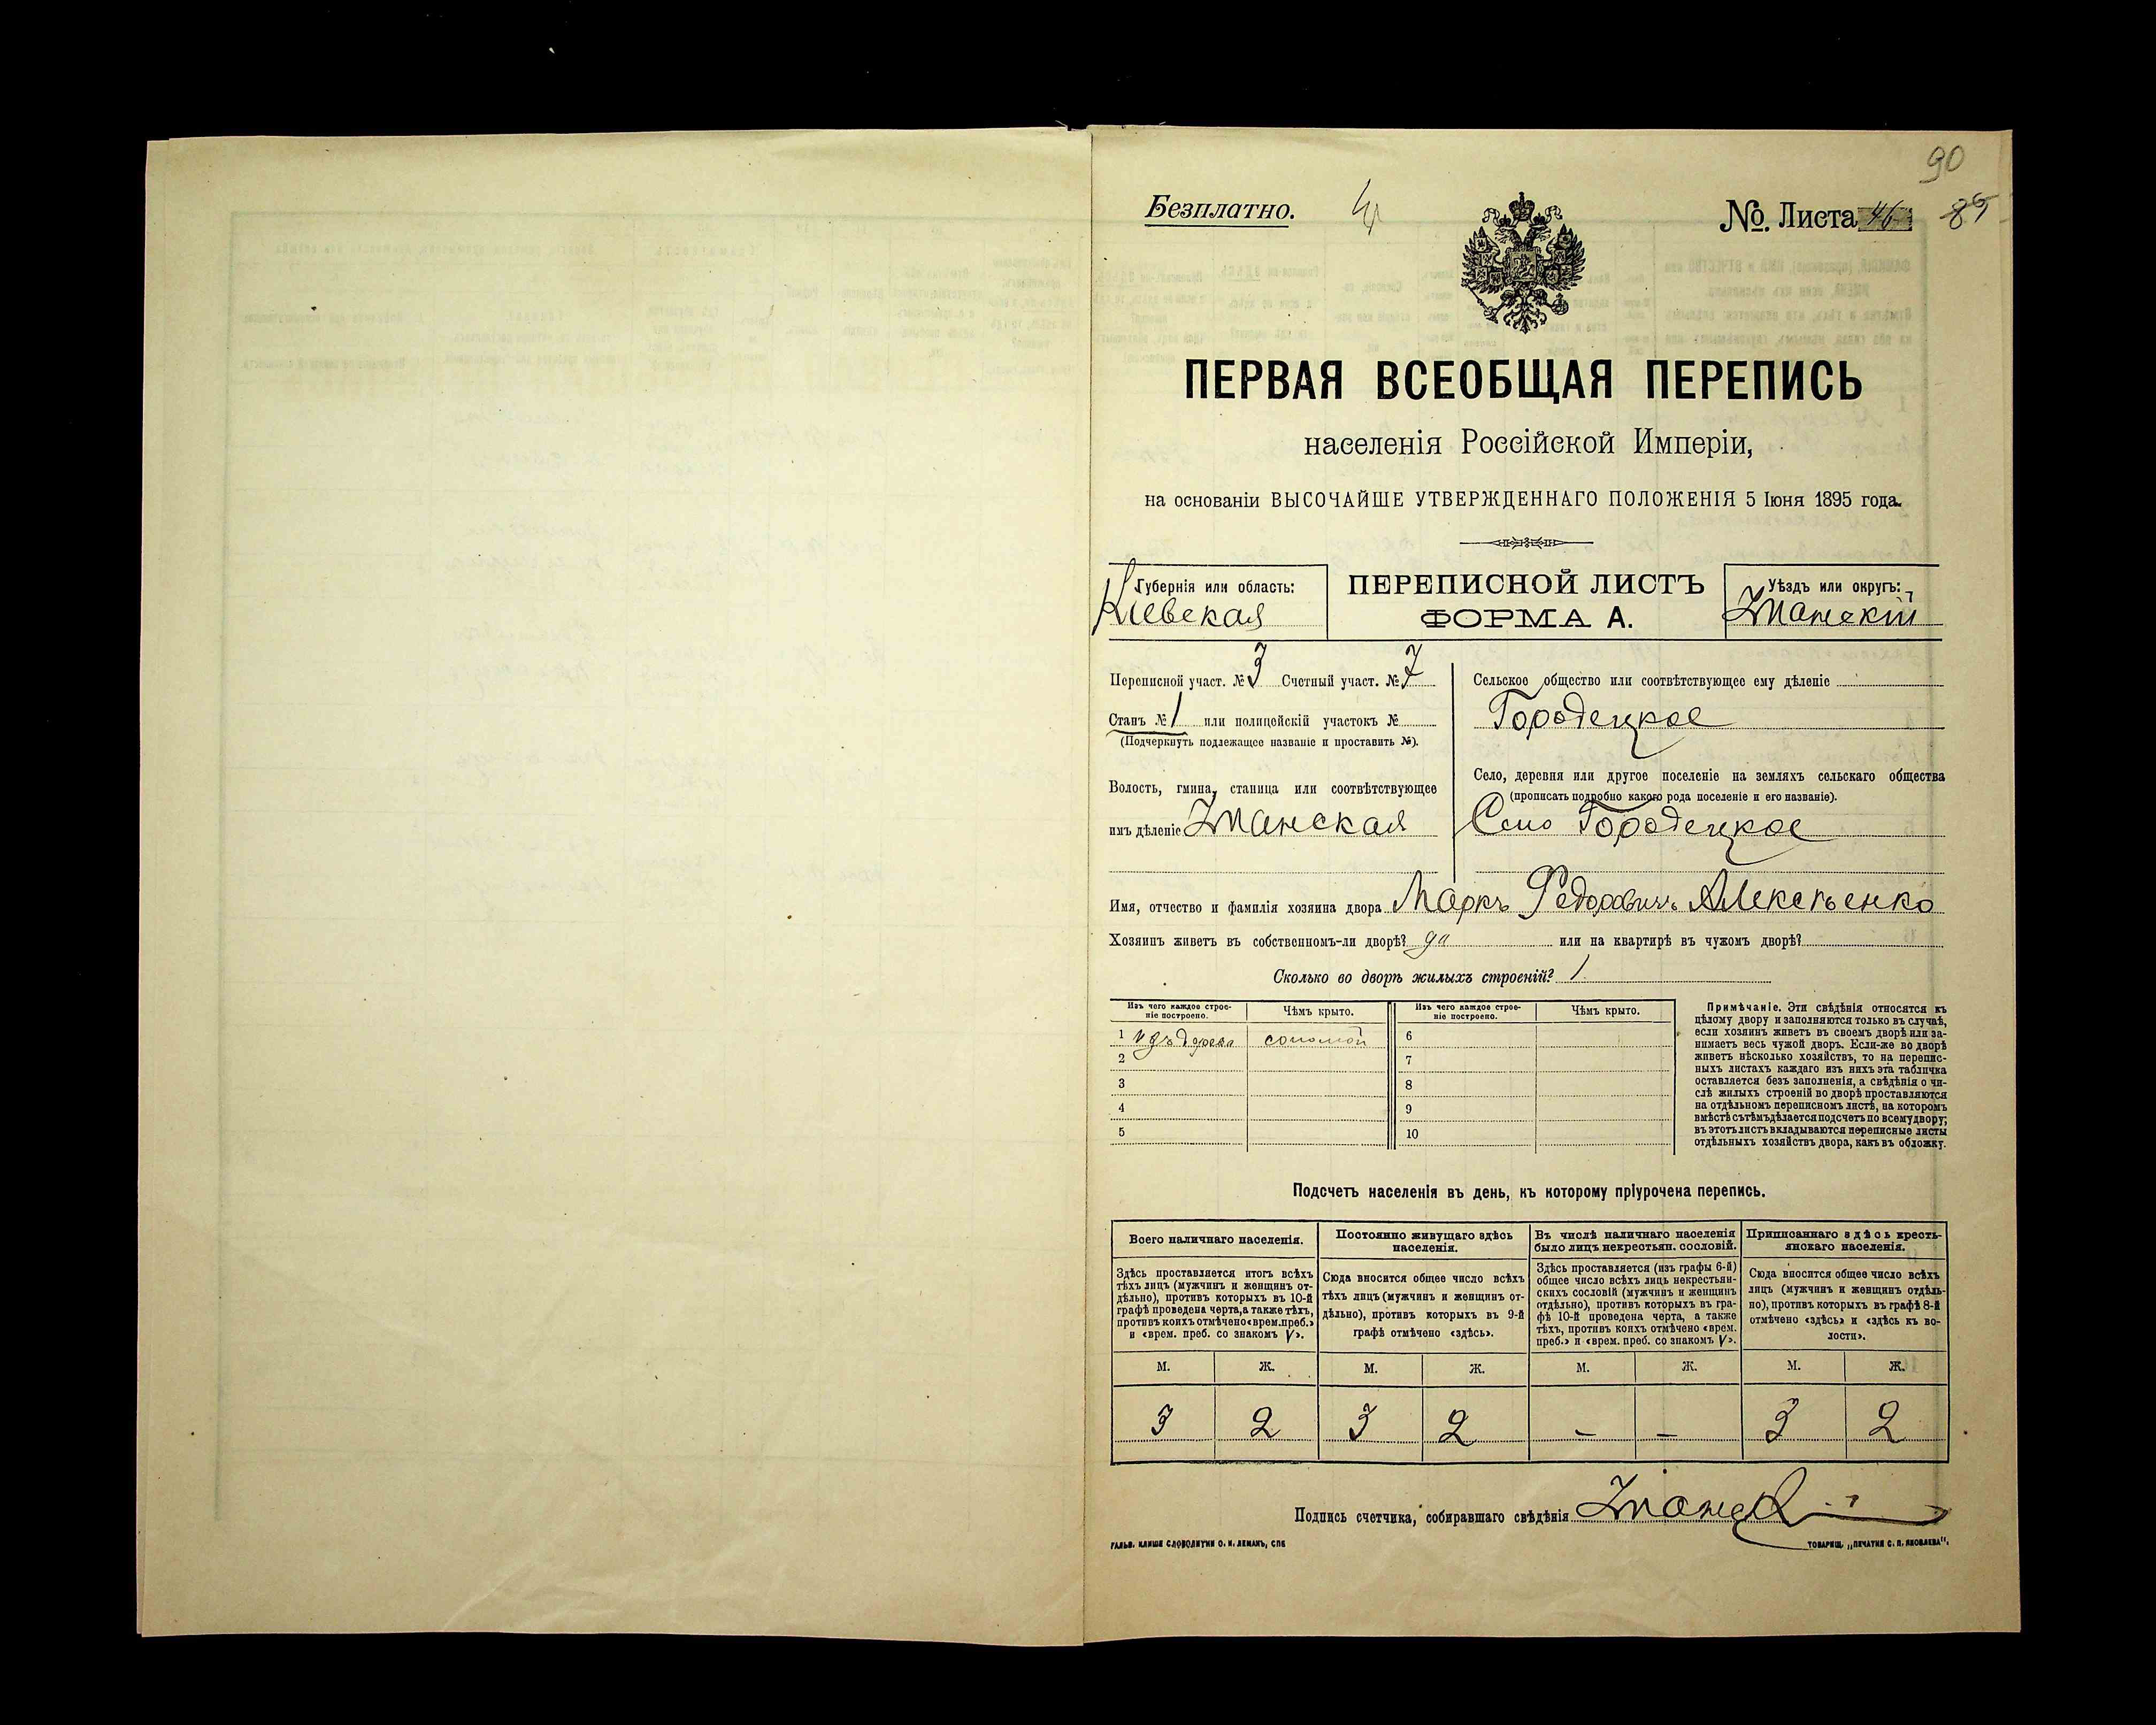 90
Безплатно.
№. Листа 46 89
ПЕРВАЯ ВСЕОБЩАЯ ПЕРЕПИСЬ
населенія Россійской Имперіи,
на основаніи ВЫСОЧАЙШЕ УТВЕРЖДЕННАГО ПОЛОЖЕНІЯ 5 Іюня 1895 года.
Губернія или область:
Кіевская
ПЕРЕПИСНОЙ ЛИСТЪ
ФОРМА А.
Уѣздъ или округъ:
Уманскій
Переписной участ. № 3 Счетный участ. № 7
Станъ № 1 или полицейскій участокъ №
(Подчеркнуть подлежащее названіе и проставить №).
Волость, гмина, станица или соотвѣтствующее
имъ дѣленіе Уманская
Сельское общество или соотвѣтствующее ему дѣленіе
Городецкое
Село, деревня или другое поселеніе на земляхъ сельскаго общества
(прописать подробно какого рода поселеніе и его названіе).
Село Городецкое
Имя, отчество и фамилія хозяина двора Маркъ Федоровичъ Алексѣенко
Хозяинъ живетъ въ собственномъ-ли дворѣ? да или на квартирѣ въ чужомъ дворѣ?
Сколько во дворѣ жилыхъ строеній? 1
Изъ чего каждое строеніе построено. Чѣмъ крыто. Изъ чего каждое строеніе построено. Чѣмъ крыто.
1 изъ дерева соломой 6
2 7
3 8
4 9
5 10
Примѣчаніе. Эти свѣдѣнія относятся къ
цѣлому двору и заполняются только въ случаѣ,
если хозяинъ живетъ въ своемъ дворѣ или за-
нимаетъ весь чужой дворъ. Если-же во дворѣ
живетъ нѣсколько хозяйствъ, то на перепис-
ныхъ листахъ каждаго изъ нихъ эта табличка
оставляется безъ заполненія, а свѣдѣнія о чи-
слѣ жилыхъ строеній во дворѣ проставляются
на отдѣльномъ переписномъ листѣ, на которомъ
вмѣстѣ съ тѣмъ дѣлается подсчетъ по всему двору;
въ этотъ листъ вкладываются переписные листы
отдѣльныхъ хозяйствъ двора, какъ въ обложку.
Подсчетъ населенія въ день, къ которому пріурочена перепись.
Всего наличнаго населенія.
Здѣсь проставляется итогъ всѣхъ
тѣхъ лицъ (мужчинъ и женщинъ от-
дѣльно), противъ которыхъ въ 10-й
графѣ проведена черта, а также тѣхъ,
противъ коихъ отмѣчено «врем. преб.»
и «врем. преб. со знакомъ V».
Постоянно живущаго здѣсь
населенія.
Сюда вносится общее число всѣхъ
тѣхъ лицъ (мужчинъ и женщинъ от-
дѣльно), противъ которыхъ въ 9-й
графѣ отмѣчено «здѣсь».
Въ числѣ наличнаго населенія
было лицъ некрестьян. сословій.
Здѣсь проставляется (изъ графы 6-й)
общее число всѣхъ лицъ некрестьян-
скихъ сословій (мужчинъ и женщинъ
отдѣльно), противъ которыхъ въ гра-
фѣ 10-й проведена черта, а также
тѣхъ, противъ коихъ отмѣчено «врем.
преб.» и «врем. преб. со знакомъ V».
Приписаннаго здѣсь кресть-
янскаго населенія.
Сюда вносится общее число всѣхъ
лицъ (мужчинъ и женщинъ отдѣль-
но), противъ которыхъ въ графѣ 8-й
отмѣчено «здѣсь» и «здѣсь къ во-
лости».
М. Ж. М. Ж. М. Ж. М. Ж.
3 2 3 2 – – 3 2
Подпись счетчика, собиравшаго свѣдѣнія
ГАЛЬВ. КЛИШЕ СЛОВОЛИТНИ О. И. ЛЕМАНЪ, СПБ
ТОВАРИЩ. „ПЕЧАТНЯ С. П. ЯКОВЛЕВА".